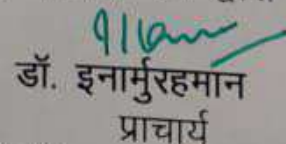 डॉ. इनार्मुरहमान
प्राचार्य